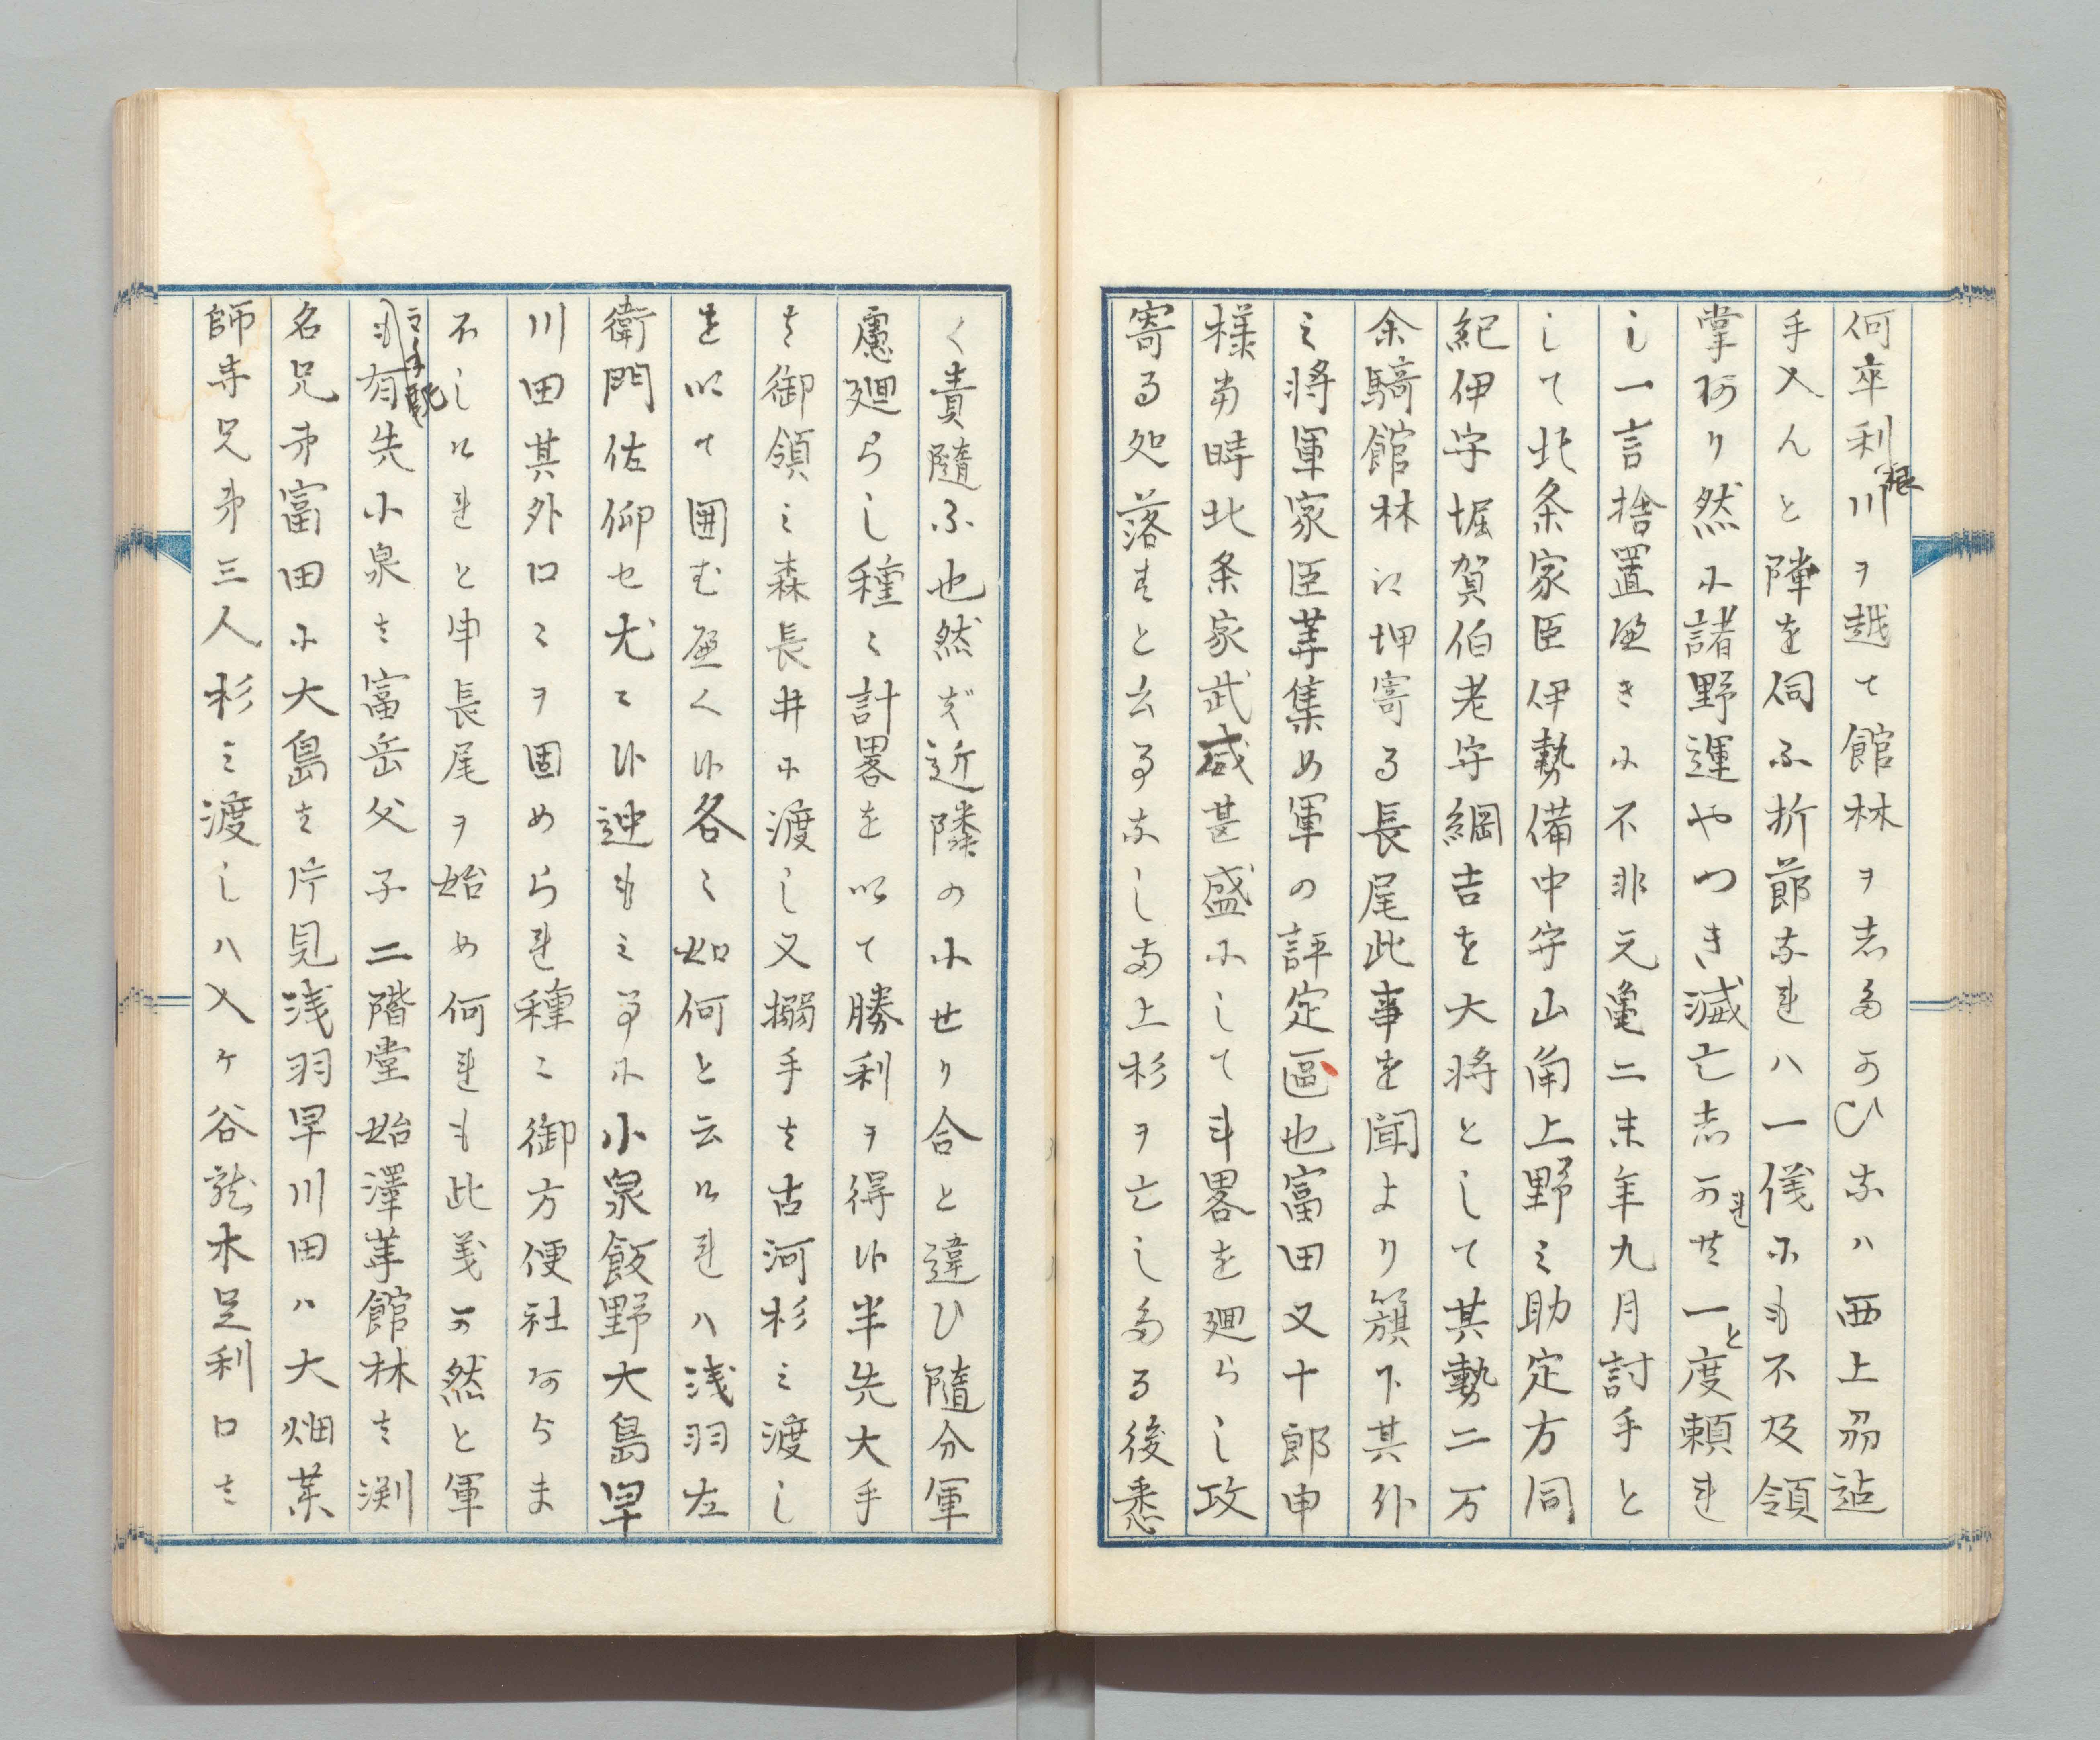 何卒利根川ヲ越て館林ヲ志たかひなハ西上刕迠
手入んと陣を伺ふ折節なれハ一儀にも不及領
掌有り然に諸野運やつき滅亡志かれ共一と度頼れ
し一言捨置難きに不非元亀二未年九月討手と
して北条家臣伊勢備中守山角上野之助定方同
紀伊守堀賀伯老守綱吉を大将として其勢二万
余騎館林に押寄る長尾此事を聞より籏下其外
之将軍家臣等集め軍の評定區也富田又十郎申
様当時北条家武威甚盛にして斗畧を廻らし攻
寄る処落すと云る事なし両上杉ヲ亡したる後悉
く責隨ふ也然ば近隣のにせり合と違ひ隨分軍
慮廻らし種々計畧を以て勝利ヲ得候半先大手
を御領之森長井に渡し又搦手を古河杉之渡し
を以て囲む可く候各々如何と云けれハ浅羽左
衛門佐仰せ尤に候迚もの事に小泉飯野大島早
川田其外口々ヲ固められ種々御方便社あらま
ホしけれと申長尾ヲ始め何れも此義可然と軍
之手配も有先小泉を富岳父子二階堂始澤等館林を渕
名兄弟富田に大島を片見浅羽早川田ハ大畑茶
師寺兄弟三人杉之渡しハ入ケ谷瀧木足利口を